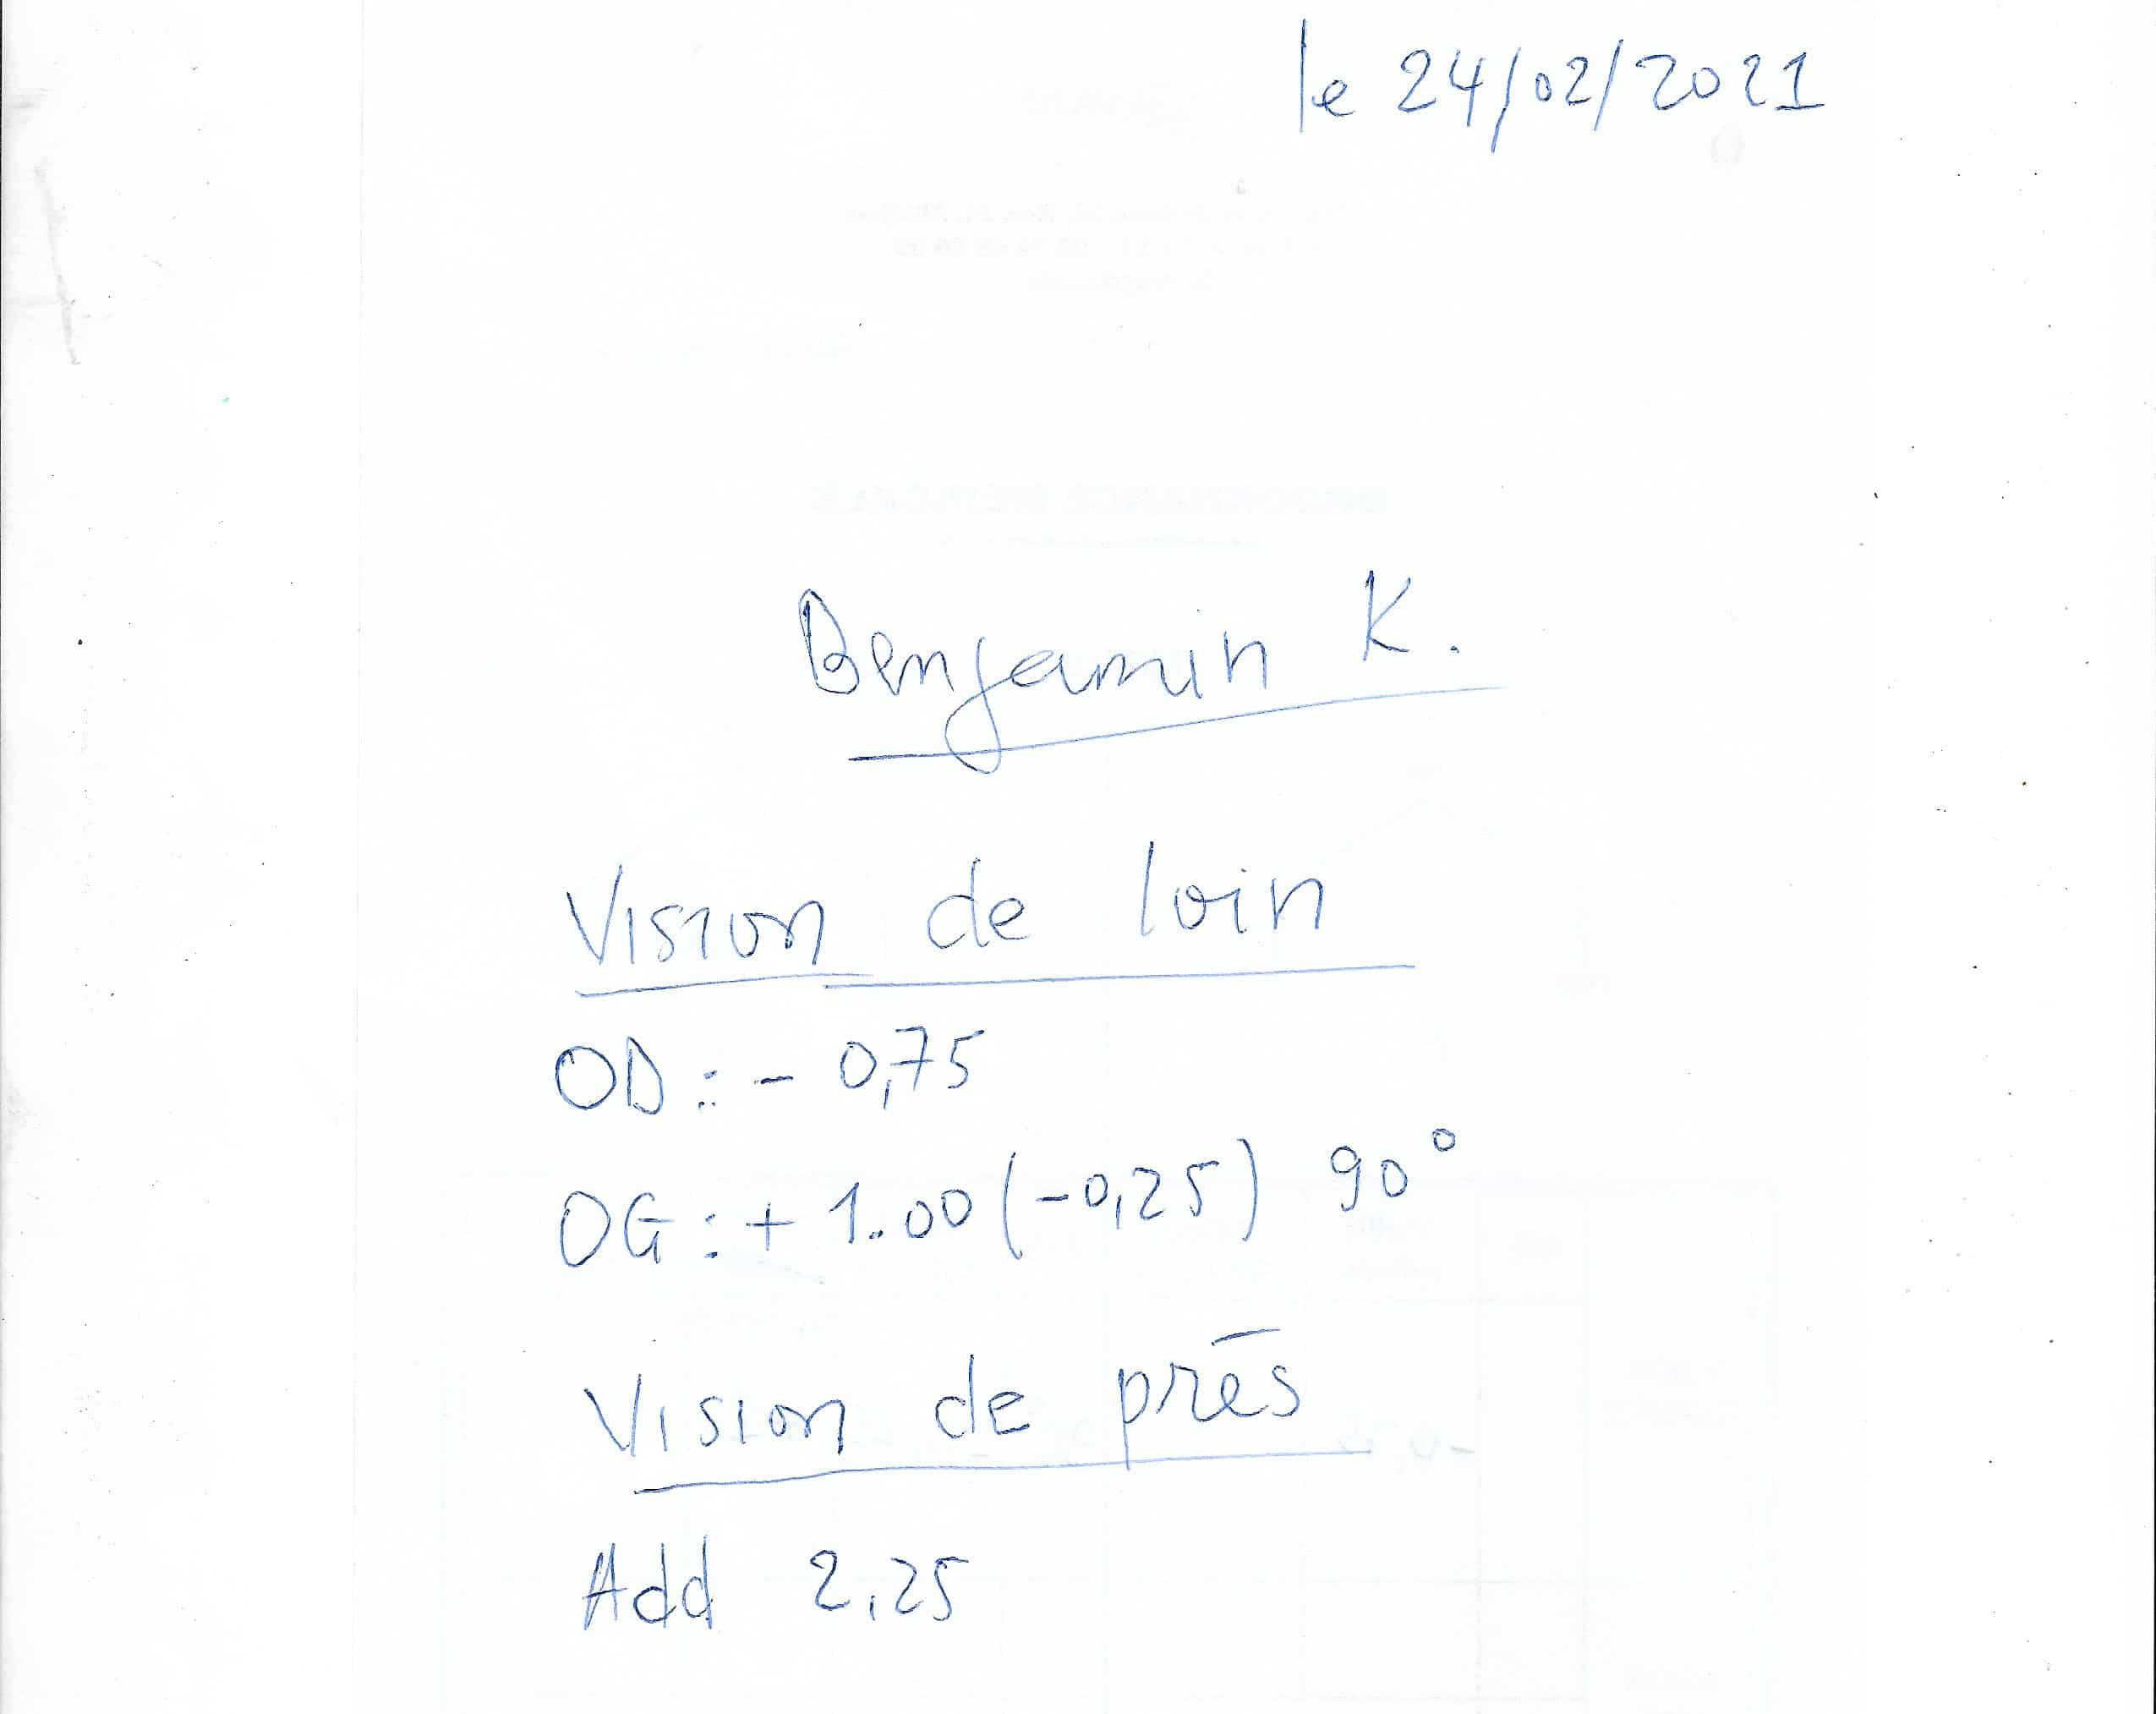 le 24/02/2021
Benjamin K.
Vision de loin
OD : - 0,75
OG : + 1.00 (-0,25) 90°
Vision de près
Add 2,25